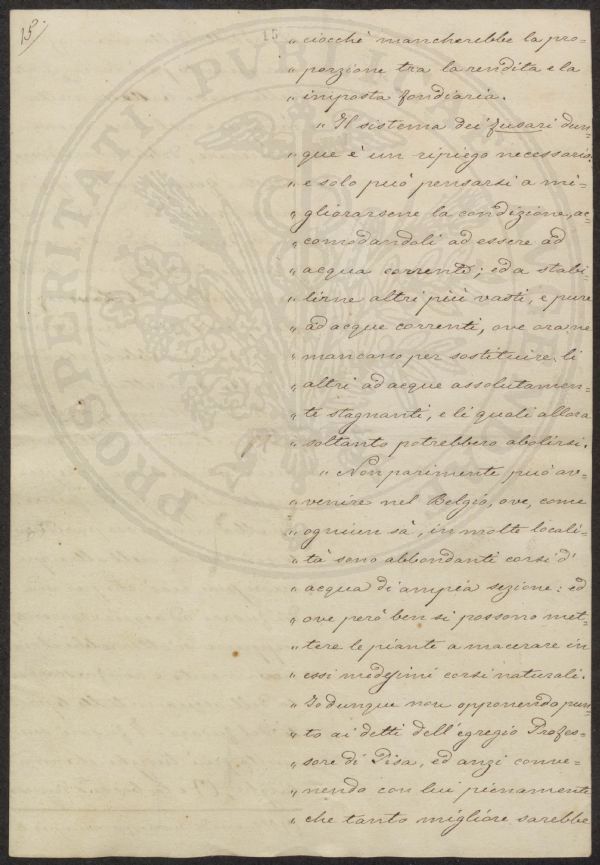 15.
15
„ ciocchè mancherebbe la pro=
„ porzione tra la rendita e la
„ imposta fondiaria.
„ Il sistema dei fusari dun=
„ que è un ripiego necessario,
„ e solo può pensarsi a mi=
„ gliorarsene la condizione, ac=
„ comodandoli ad essere ad
„ acqua corrente; ed a stabi=
„ lirne altri più vasti, e pure
„ ad acque correnti, ove ora ne
„ mancano per sostituire li
„ altri ad acque assolutamen=
„ te stagnanti, e li quali allora
„ soltanto potrebbero abolirsi.
„ Non parimente può av=
„ venire nel Belgio, ove, come
„ ognuen sà, in molte locali=
„ tà sono abbondanti corsi d'
„ acqua di ampia sezione: ed
„ ove però ben si possono met=
„ tere le piante a macerare in
„ essi medesimi corsi naturali.
„ Io dunque non opponendo pun=
„ to ai detti dell'egregio Profes=
„ sore di Pisa, ed anzi conve=
„ nendo con lui pienamente
„ che tanto migliore sarebbe
PROSPERITATI PUBLICAE